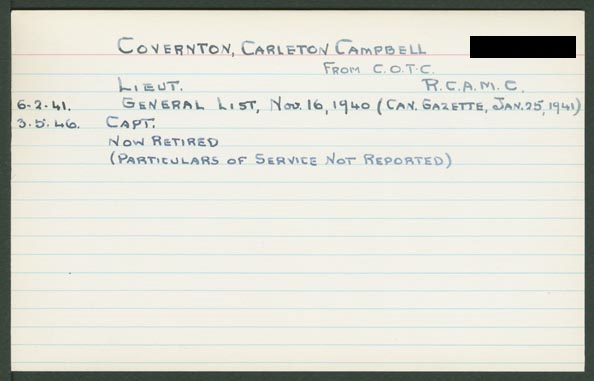 COVERNTON, CARLETON CAMPBELL
FROM C.O.T.C.
LIEUT. R.C.A.M.C.
6-2-41. GENERAL LIST, NOV. 16, 1940 (CAN. GAZETTE, JAN. 25, 1941)
3.5.46. CAPT.
NOW RETIRED
(PARTICULARS OF SERVICE NOT REPORTED)